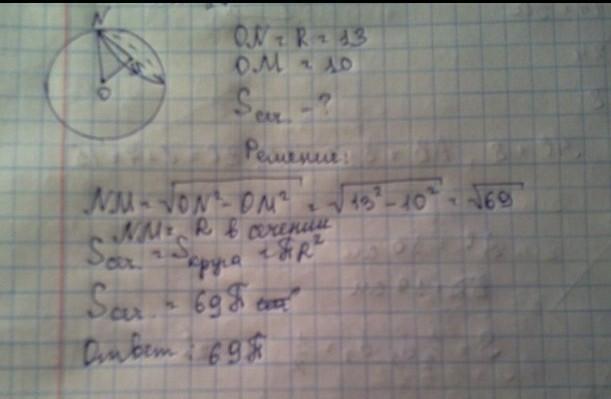 N
M
O
ON = R = 13
OM = 10
Sсеч. - ?
Решение:
NM = √ON² - OM² = √13² - 10² = √69
NM = R в сечении
Sсеч. = Sкруга = πR²
Sсеч. = 69π
Ответ: 69π